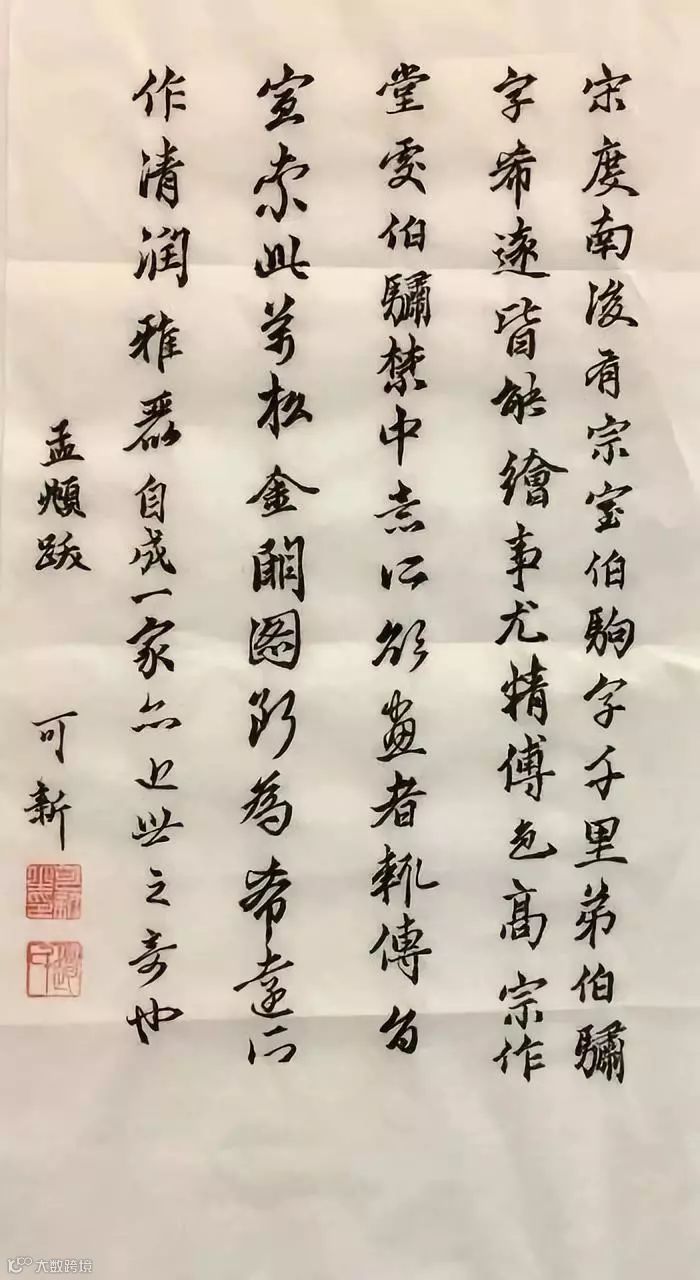 宋度南後有宗室伯駒字千里弟伯驌
字希遠皆能繪事尤精傅色高宗作
堂處伯驌禁中意所欲畫者輒傳旨
宣索此萬松金闕圖斷為希遠所
作清潤雅麗自成一家亦近世之奇也
孟頫跋
可新
大数跨境